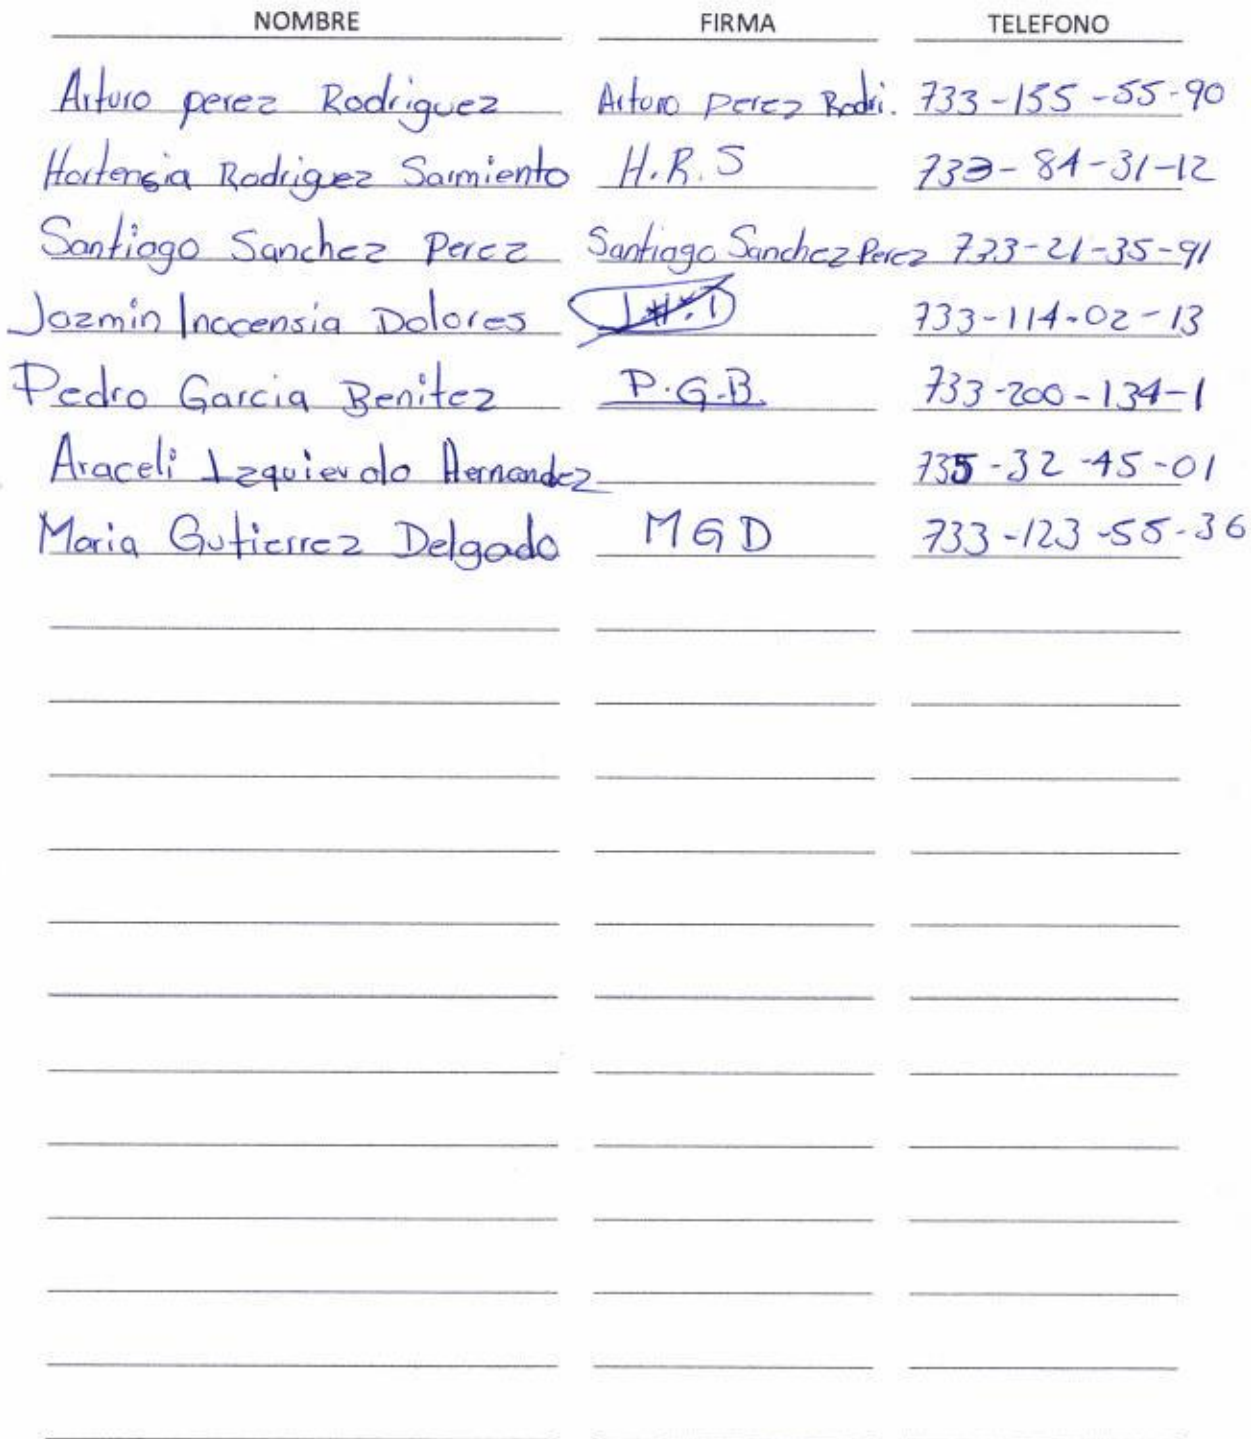 NOMBRE FIRMA TELEFONO
Arturo perez Rodriguez Arturo perez Rodri. 733-155-55-90
Hortensia Rodriguez Sarmiento H.R.S 733-84-31-12
Santiago Sanchez Perez Santiago Sanchez Perez 733-21-35-91
Jazmin Inocensia Dolores 733-114-02-13
Pedro Garcia Benitez P.G.B. 733-200-134-1
Araceli Izquierdo Hernandez 735-32-45-01
Maria Gutierrez Delgado MGD 733-123-55-36